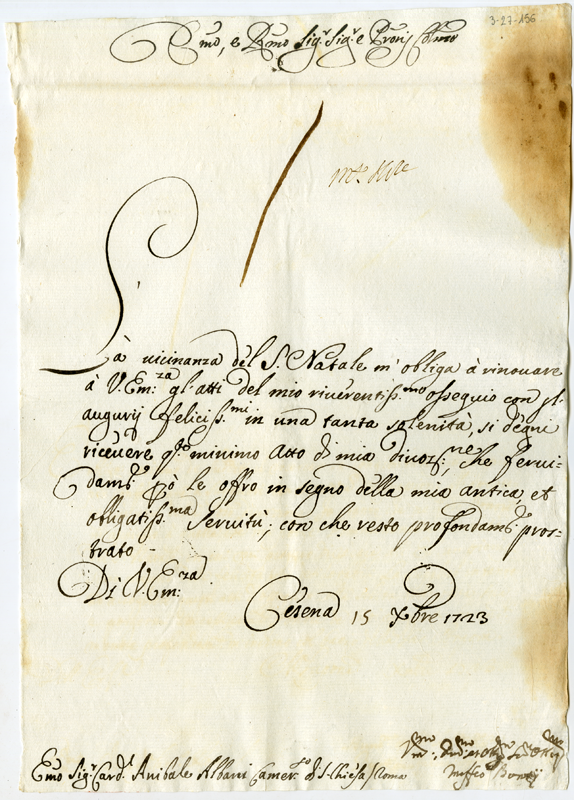 3-27-156
Emo, e Rmo Sig.r Sig.r e Pron Colmo
Là uicinanza del S. Natale m' obliga à rinouare
à V. Em.za gl' atti del mio riuerentiss.mo ossequio con gl'
augurij feliciss.mi in una tanta solenità, si degni
riceuere q.to minimo Atto di mia diuoz.ne, che ferui-
dam.te le offro in segno della mia antica et
obligatiss.ma Seruitù, con che resto profondam.te pros-
trato
Di V. Em.za
Cesena 15 Xbre 1723
Emo Sig.r Card.l Anibale Albani Camer.o di S. Chiesa Roma